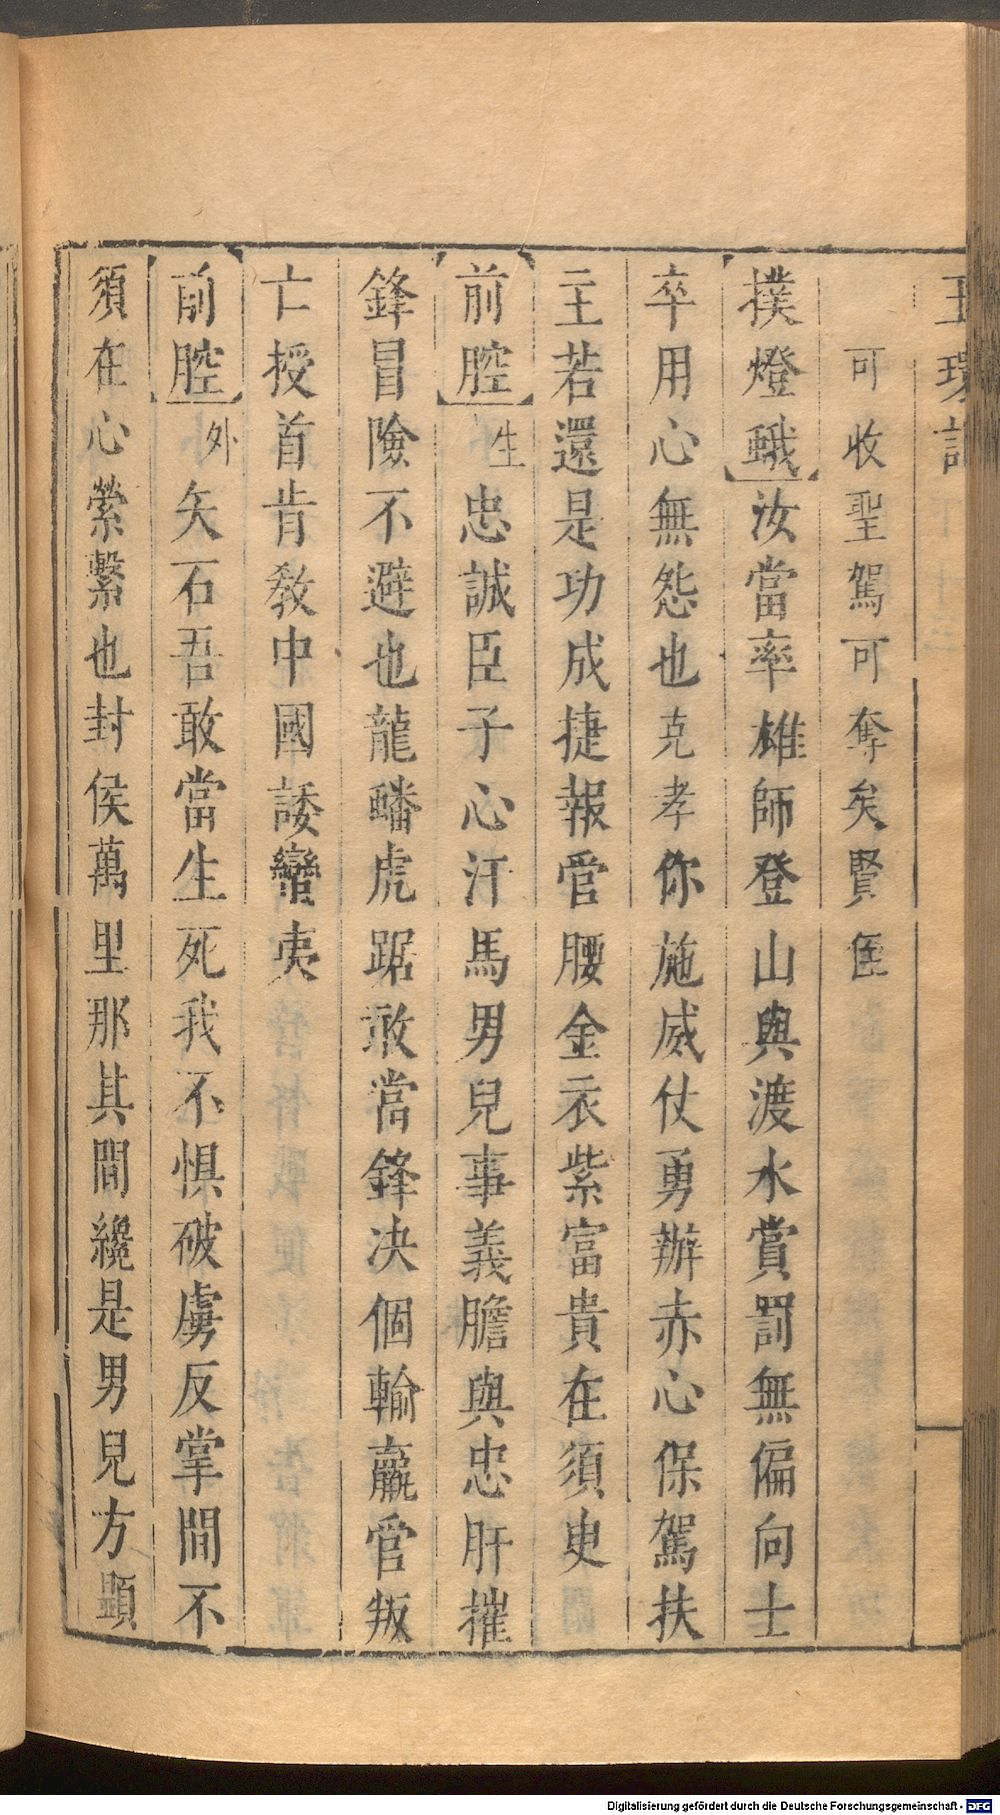 玉環記
可收聖駕可奪矣賢侄
撲燈蛾汝當率雄師登山與渡水賞罰無偏向士
卒用心無怨也克孝你施威仗勇辦赤心保駕扶
主若還是功成捷報管腰金衣紫富貴在須臾
前腔生忠誠臣子心汗馬男兒事義膽與忠肝摧
鋒冒險不避也龍蟠虎踞敢當鋒决個輸贏管叛
亡授首肯教中國諉蠻夷
前腔外矢石吾敢當生死我不惧破虜反掌間不
須在心縈繫也封侯萬里那其間纔是男兒方顯
Digitalisierung gefördert durch die Deutsche Forschungsgemeinschaft - DFG